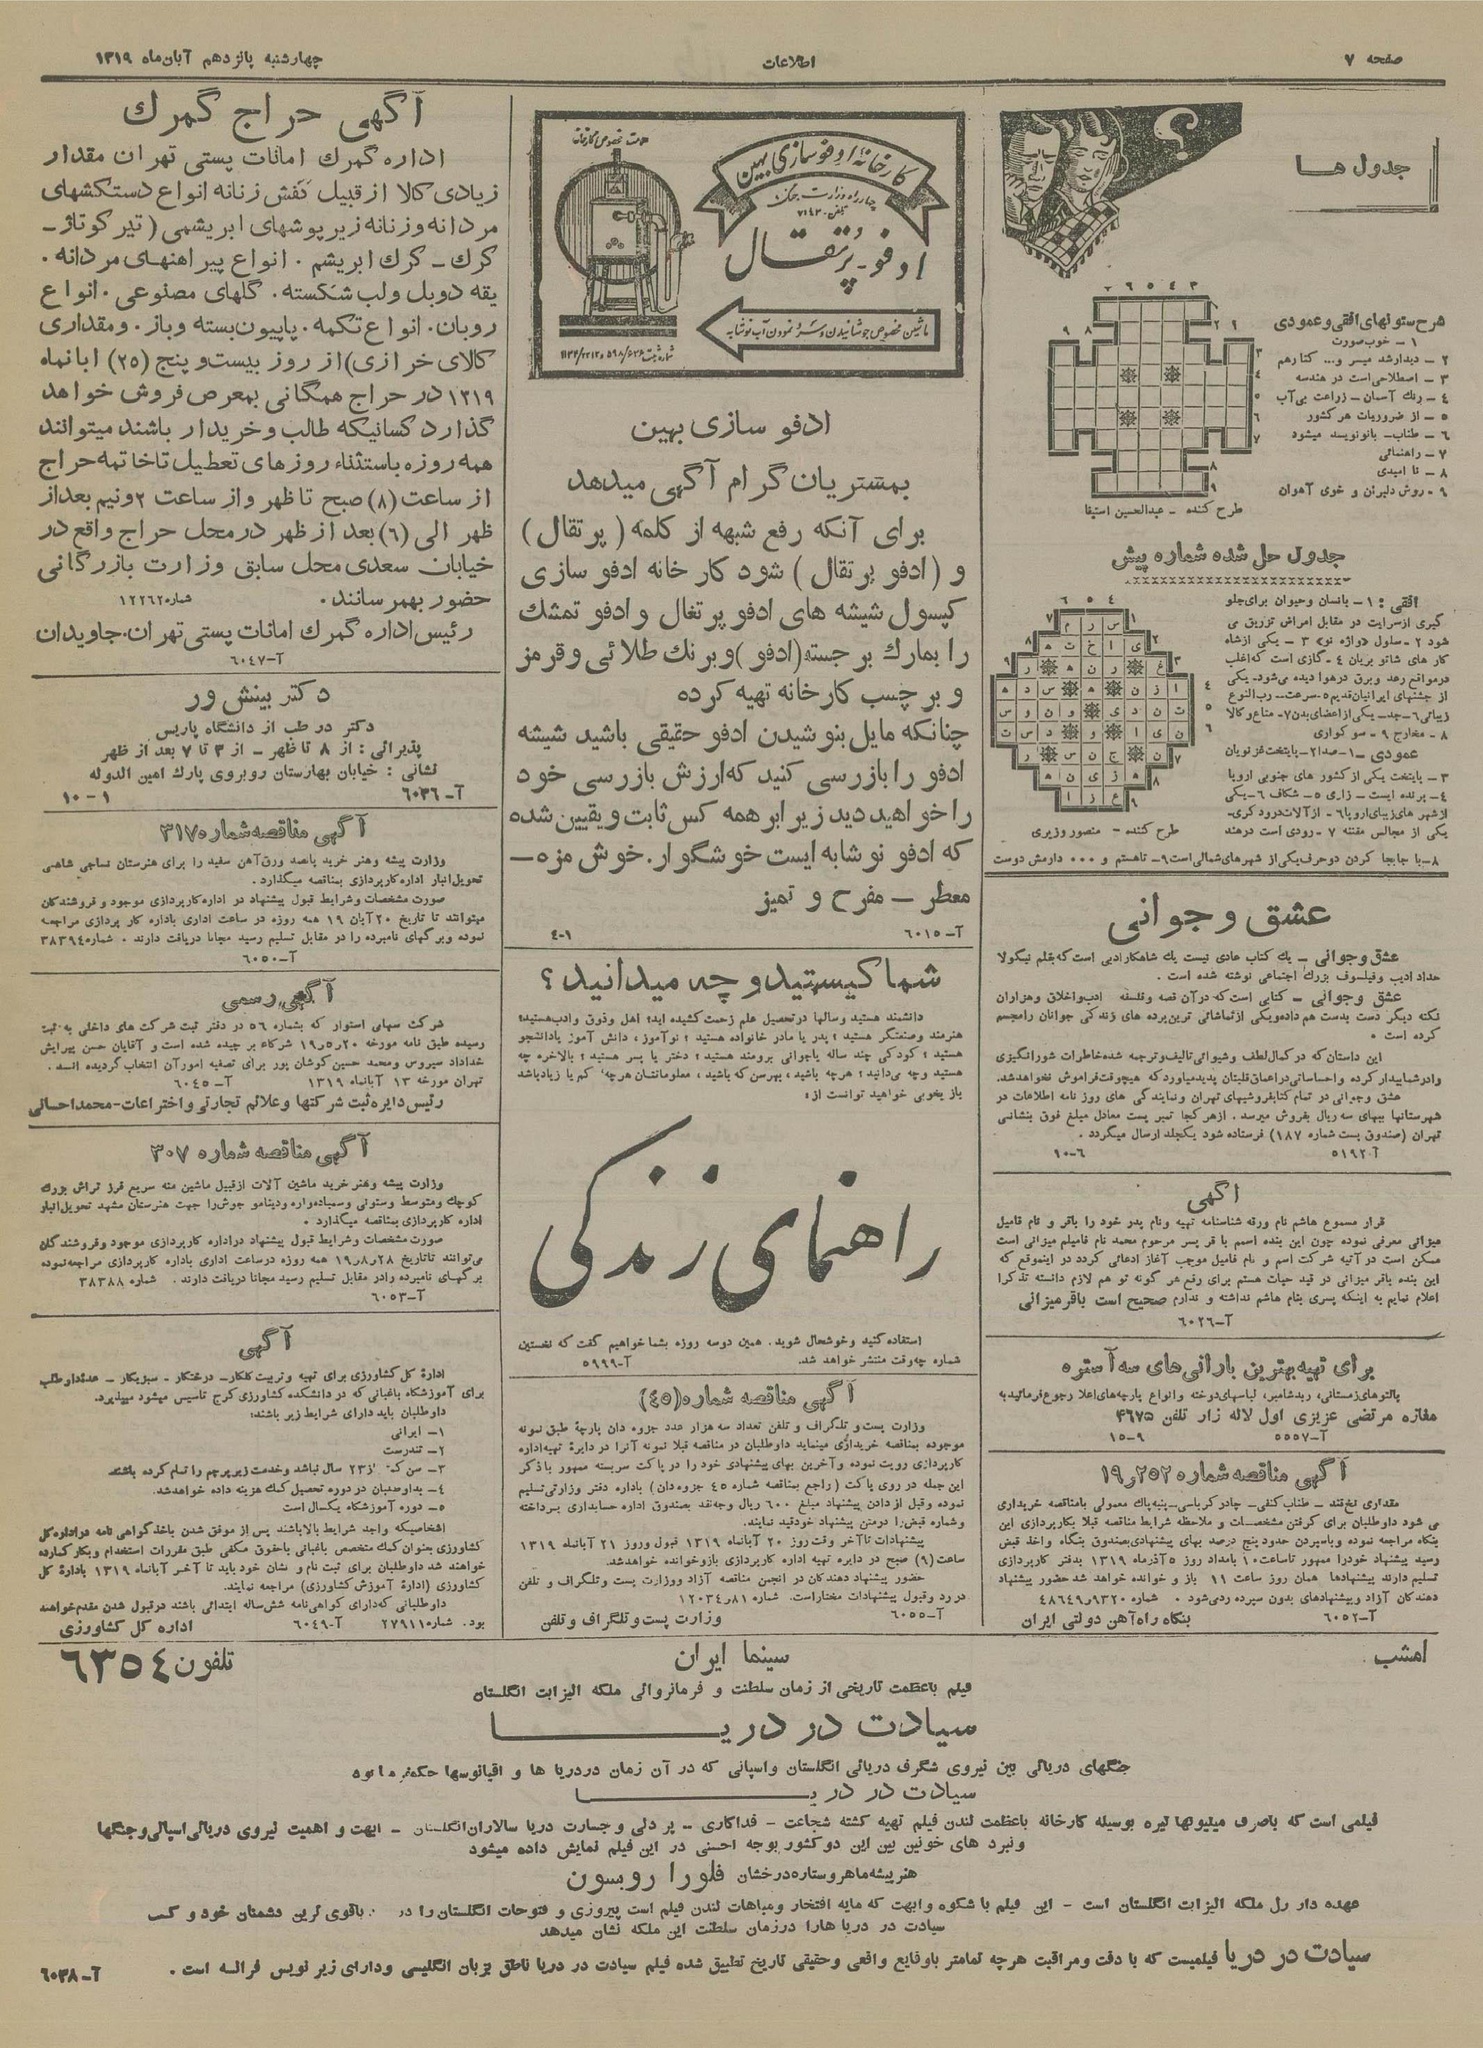 صفحه ۷
اطلاعات
چهارشنبه پانزدهم آبان‌ماه ۱۳۱۹
جدول ها
شرح ستونهای افقی و عمودی
۱ - خوب‌صورت
۲ - دیدارشد میسر و... کنارهم
۳ - اصطلاحی است در هندسه
۴ - رنك آسمان - زراعت بی‌آب
۵ - از ضروریات هر کشور
۶ - طناب - بانو نویسد میشود
۷ - راهنمائی
۸ - نا امیدی
۹ - روش دلبران و خوی آهوان
طرح کننده - عبدالحسین استیفا
جدول حل شده شماره پیش
افقی: ۱ - بانسان وحیوان برای جلو
گیری از سرایت در مقابل امراض تزریق می
شود ۲ - سلول «واژه نو» ۳ - یکی از شاه
کار های شاتو بریان ۴ - گازی است که اغلب
در مواقع رعد و برق در هوا دیده می‌شود - یکی
از جشنهای ایرانیان قدیم ۵ - سرعت - رب‌النوع
زیبائی ۶ - جد - یکی از اعضای بدن ۷ - متاع وکالا
۸ - مخارج ۹ - سو کواری
عمودی - ۱ - صدا ۲ - پایتخت غزنویان
۳ - پایتخت یکی از کشور های جنوبی اروپا
۴ - پرنده ایست - زاری ۵ - شکاف ۶ - یکی
از شهر های زیبای اروپا ۶ - از آلات درود گری -
یکی از مجالس مقننه ۷ - رودی است درهند
طرح کننده - منصور وزیری
۸ - با جابجا کردن دو حرف یکی از شهر های شمالی است ۹ - ناهستم و ۰۰۰ دارمش دوست
عشق و جوانی
عشق و جوانی - یك کتاب عادی نیست یك شاهکار ادبی است که بقلم نیکولا
حداد ادیب و فیلسوف بزرك اجتماعی نوشته شده است .
عشق و جوانی - کتابی است که در آن قصه و فلسفه ادب و اخلاق و هزاران
نکته دیگر دست بدست هم داده و یکی از تماشائی ترین پرده های زندگی جوانان را مجسم
کرده است .
این داستان که در کمال لطف و شیوائی تالیف و ترجمه شده خاطرات شورانگیزی
را در شما بیدار کرده و احساساتی در اعماق قلبتان پدید میاورد که هیچوقت فراموش نخواهد شد.
عشق و جوانی در تمام کتابفروشیهای تهران و نمایندگی های روز نامه اطلاعات در
شهرستانها ببهای سه ریال بفروش میرسد . از هر کجا تمبر پست معادل مبلغ فوق بنشانی
تهران (صندوق پست شماره ۱۸۷) فرستاده شود یکجلد ارسال میگردد .
آ-۵۱۹۲ ۱۰-۶
آگهی
قرار مسموع هاشم نام ورقه شناسنامه تهیه ونام پدر خود را باقر و نام فامیل
میزانی معرفی نموده چون این بنده اسمم با قر پسر مرحوم محمد نام فامیلم میزانی است
ممکن است در آتیه شرکت اسم و نام فامیل موجب آغاز ادعائی گردد در اینموقع که
این بنده باقر میزانی در قید حیات هستم برای رفع هر گونه تو هم لازم دانسته تذکرا
اعلام نمایم به اینکه پسری بنام هاشم نداشته و ندارم صحیح است باقر میزانی
آ-۶۰۲۶
برای تهیه بهترین بارانی‌های سه آستره
پالتوهای زمستانی، ربدشامبر، لباسهای دوخته وانواع پارچه‌های اعلا رجوع فرمائید به
مغازه مرتضی عزیزی اول لاله زار تلفن ۴۶۷۵
آ-۵۵۵۷ ۱۵-۹
آگهی مناقصه شماره ۲۵۲ر۱۹
مقداری نخ‌قند - طناب کنفی - چادر کرباسی - پنبه پاك معمولی بامناقصه خریداری
می شود داوطلبان برای گرفتن مشخصات و ملاحظه شرایط مناقصه قبلا بکارپردازی این
بنگاه مراجعه نموده وباسپردن حدود پنج درصد بهای پیشنهادی بصندوق بنگاه واخذ قبض
رسید پیشنهاد خودرا ممهور تاساعت ۱۰ بامداد روز ۵ آذرماه ۱۳۱۹ بدفتر کارپردازی
تسلیم دارند پیشنهادها همان روز ساعت ۱۱ باز و خوانده خواهد شد حضور پیشنهاد
دهندگان آزاد و بپیشنهادهای بدون سپرده ردمی‌شود . شماره ۹۳۲۰ر۴۸۶۴۹
آ-۶۰۵۲ بنگاه راه‌آهن دولتی ایران
کارخانه ادفو سازی بهین
چهار راه وزارت جنگ
تلفن - ۷۱۴۳
ادفو - پرتقال
علامت مخصوص کارخانه
ماشین مخصوص جوشانیدن و سرد نمودن آب نوشابه
ادفو سازی بهین
بمشتریان گرام آگهی میدهد
برای آنکه رفع شبهه از کلمه (پرتقال)
و (ادفو پرتقال) شود کارخانه ادفو سازی
کپسول شیشه های ادفو پرتغال و ادفو تمشك
را بمارك برجسته (ادفو) و برنك طلائی و قرمز
و برچسب کارخانه تهیه کرده
چنانکه مایل بنوشیدن ادفو حقیقی باشید شیشه
ادفو را بازرسی کنید که ارزش بازرسی خود
را خواهید دید زیرا بر همه کس ثابت و یقیین شده
که ادفو نوشابه ایست خوشگوار. خوش مزه -
معطر - مفرح و تمیز
آ-۶۰۱۵ ۴-۱
شما کیستید و چه میدانید؟
دانشمند هستید و سالها در تحصیل علم زحمت کشیده اید؛ اهل و ذوق و ادب هستید؛
هنرمند و صنعتگر هستید؛ پدر یا مادر خانواده هستید؛ نوآموز، دانش آموز یا دانشجو
هستید؛ کودکی چند ساله یا جوانی برومند هستید؛ دختر یا پسر هستید؛ بالاخره چه
هستید و چه می‌دانید؛ هرچه باشید، بهرسن که باشید، معلوماتتان هرچه کم یا زیاد باشد
باز بخوبی خواهید توانست از:
راهنمای زندگی
استفاده کنید و خوشحال شوید. همین دوسه روزه بشما خواهیم گفت که نخستین
شماره چه‌وقت منتشر خواهد شد. آ-۵۹۹۹
آگهی مناقصه شماره (۴۵)
وزارت پست و تلگراف و تلفن تعداد سه هزار عدد جزوه دان پارچهٔ طبق نمونه
موجوده بمناقصه خریداری مینماید داوطلبان در مناقصه قبلا نمونه آنرا در دایرهٔ تهیه اداره
کارپردازی رویت نموده و آخرین بهای پیشنهادی خود را در پاکت سربسته ممهور با ذکر
این جمله در روی پاکت (راجع بمناقصه شماره ۴۵ جزوه‌دان) باداره دفتر وزارتی تسلیم
نموده و قبل از دادن پیشنهاد مبلغ ۶۰۰ ریال وجه نقد بصندوق اداره حسابداری پرداخته
و شماره قبض را درمتن پیشنهاد خود قید نمایند.
پیشنهادات تا آخر وقت روز ۲۰ آبانماه ۱۳۱۹ قبول و روز ۲۱ آبانماه ۱۳۱۹
ساعت (۹) صبح در دایره تهیه اداره کارپردازی باز و خوانده خواهد شد.
حضور پیشنهاد دهندگان در انجمن مناقصه آزاد و وزارت پست و تلگراف و تلفن
در رد و قبول پیشنهادات مختار است. شماره ۸۱ر۱۲۰۳۴
آ-۶۰۵۵ وزارت پست و تلگراف و تلفن
آگهی حراج گمرك
اداره گمرك امانات پستی تهران مقدار
زیادی کالا از قبیل کفش زنانه انواع دستکشهای
مردانه و زنانه زیرپوشهای ابریشمی (تیرکوتاژ -
کرك - کرك ابریشم . انواع پیراهنهای مردانه .
یقه دوبل و لب شکسته . گلهای مصنوعی . انواع
روبان . انواع تکمه . پاپیون بسته و باز . و مقداری
کالای خرازی) از روز بیست و پنج (۲۵) ابانماه
۱۳۱۹ در حراج همگانی بمعرض فروش خواهد
گذارد کسانیکه طالب و خریدار باشند میتوانند
همه روزه باستثناء روزهای تعطیل تا خاتمه حراج
از ساعت (۸) صبح تا ظهر و از ساعت ۲ ونیم بعد از
ظهر الی (۶) بعد از ظهر در محل حراج واقع در
خیابان سعدی محل سابق وزارت بازرگانی
حضور بهمرسانند . شماره ۱۲۲۶۲
رئیس اداره گمرك امانات پستی تهران . جاویدان
آ-۶۰۴۷
دکتر بینش ور
دکتر در طب از دانشگاه پاریس
پذیرائی: از ۸ تا ظهر - از ۳ تا ۷ بعد از ظهر
نشانی: خیابان بهارستان روبروی پارك امین الدوله
آ-۶۰۳۶ ۱۰-۱
آگهی مناقصه شماره ۳۱۷
وزارت پیشه وهنر خرید پانصد ورق آهن سفید را برای هنرستان نساجی شاهی
تحویل انبار اداره کارپردازی بمناقصه میگذارد .
صورت مشخصات وشرایط قبول پیشنهاد در اداره کارپردازی موجود و فروشندگان
میتوانند تا تاریخ ۲۰ آبان ۱۹ همه روزه در ساعت اداری باداره کار پردازی مراجعه
نموده و برگهای نامبرده را در مقابل تسلیم رسید مجانا دریافت دارند . شماره ۳۸۳۹۴
آ-۶۰۵۰
آگهی رسمی
شرکت سهامی استوار که بشماره ۵۶ در دفتر ثبت شرکت های داخلی به ثبت
رسیده طبق نامه مورخه ۲۰ر۵ر۱۹ شرکاء بر چیده شده است و آقایان حسن پیرایش
خداداد سیروس و محمد حسین کوشان پور برای تصفیه امور آن انتخاب گردیده اند.
تهران مورخه ۱۳ آبانماه ۱۳۱۹ آ-۶۰۴۵
رئیس دایره ثبت شرکتها و علائم تجارتی و اختراعات - محمد احسانی
آگهی مناقصه شماره ۳۰۷
وزارت پیشه وهنر خرید ماشین آلات ازقبیل ماشین مته سریع فرز تراش بزرك
کوچك ومتوسط وستونی وسمباده‌واره ودینامو جوش را جهت هنرستان مشهد تحویل انبار
اداره کارپردازی بمناقصه میگذارد .
صورت مشخصات وشرایط قبول پیشنهاد دراداره کارپردازی موجود و فروشندگان
می‌توانند تاتاریخ ۲۸ر۸ر۱۹ همه روزه درساعت اداری باداره کارپردازی مراجعه نموده
برگهای نامبرده را در مقابل تسلیم رسید مجانا دریافت دارند . شماره ۳۸۳۸۸
آ-۶۰۵۳
آگهی
ادارهٔ کل کشاورزی برای تهیه و تربیت گلکار - درختکار - سبزیکار - عده‌ٔ داوطلب
برای آموزشگاه باغبانی که در دانشکده کشاورزی کرج تاسیس میشود میپذیرد.
داوطلبان باید دارای شرایط زیر باشند:
۱- ایرانی
۲- تندرست
۳- سن ک از ۲۳ سال نباشد وخدمت زیرپرچم را تمام کرده باشند
۴- بداوطلبان در دوره تحصیل کمك هزینه داده خواهد شد.
۵- دوره آموزشگاه یکسال است
اشخاصیکه واجد شرایط بالا باشند پس از موفق شدن باخذ گواهی نامه در اداره کل
کشاورزی بعنوان کمك متخصص باغبانی باحقوق مکفی طبق مقررات استخدام و بکار گمارده
خواهند شد داوطلبان برای ثبت نام و نشان خود باید تا آخر آبانماه ۱۳۱۹ بادارهٔ کل
کشاورزی (ادارهٔ آموزش کشاورزی) مراجعه نمایند.
داوطلبانی که دارای گواهی نامه شش ساله ابتدائی باشند در قبول شدن مقدم خواهند
بود. شماره ۲۷۹۱۱ آ-۶۰۴۹ اداره کل کشاورزی
امشب . سینما ایران تلفون ۶۳۵۴
فیلم باعظمت تاریخی از زمان سلطنت و فرمانروائی ملکه الیزابت انگلستان
سیادت در دریا
جنگهای دریائی بین نیروی شگرف دریائی انگلستان و اسپانی که در آن زمان در دریا ها و اقیانوسها حکمفرما بوده
سیادت در دریا
فیلمی است که باصرف میلیونها لیره بوسیله کارخانه باعظمت لندن فیلم تهیه گشته شجاعت - فداکاری - پر دلی و جسارت دریا سالاران انگلستان - ابهت و اهمیت نیروی دریائی اسپانی و جنگها
ونبرد های خونین بین این دو کشور بوجه احسنی در این فیلم نمایش داده میشود
هنرپیشه ماهر و ستاره درخشان فلورا روبسون
عهده دار رل ملکه الیزابت انگلستان است - این فیلم با شکوه و ابهت که مایه افتخار و مباهات لندن فیلم است پیروزی و فتوحات انگلستان را در باقوی ترین دشمنان خود و کسب
سیادت در دریا هارا درزمان سلطنت این ملکه نشان میدهد
سیادت در دریا فیلمیست که با دقت و مراقبت هرچه تمامتر باوقایع واقعی و حقیقی تاریخ تطبیق شده فیلم سیادت در دریا ناطق بزبان انگلیسی و دارای زیر نویس فرانسه است . آ-۶۰۳۸